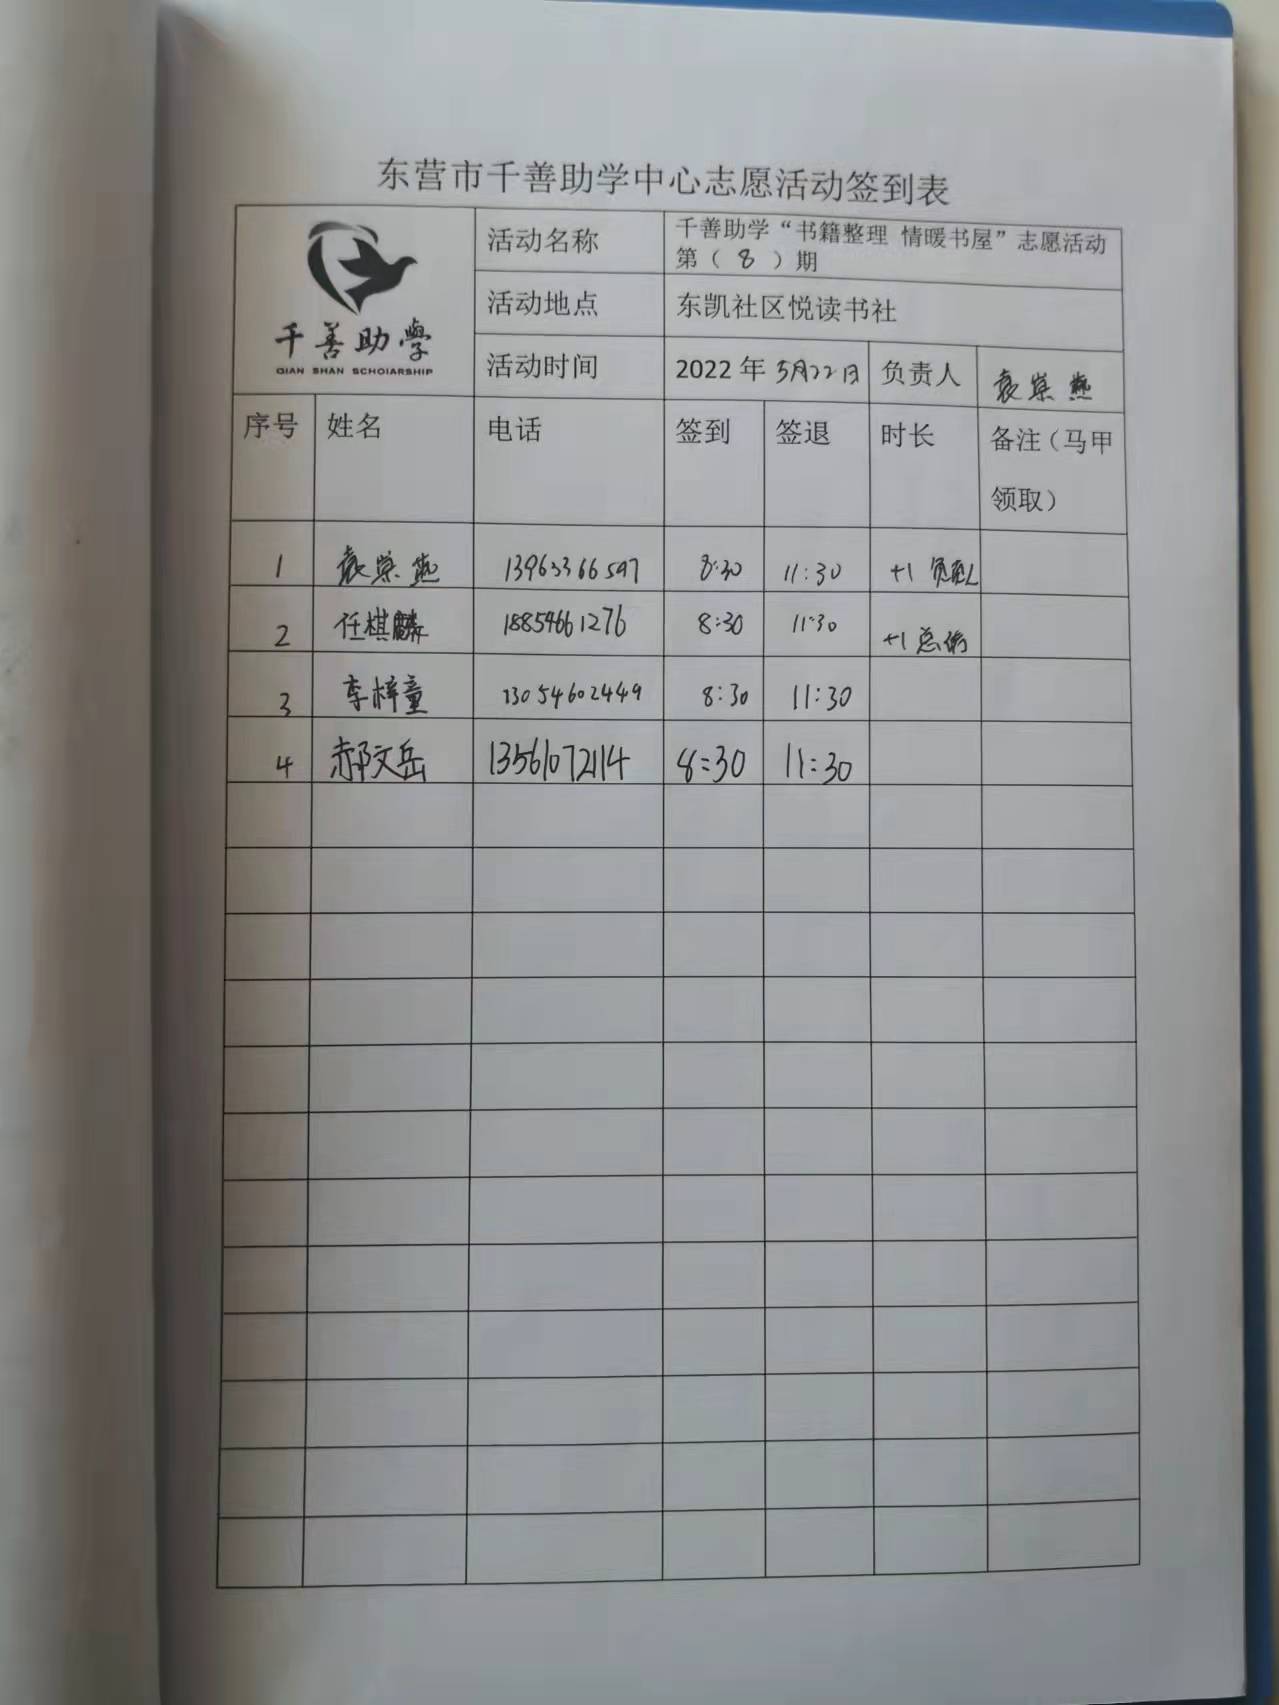 东营市千善助学中心志愿活动签到表
千善助學
QIAN SHAN SCHOIARSHIP
活动名称 千善助学“书籍整理 情暖书屋”志愿活动
第（ 8 ）期
活动地点 东凯社区悦读书社
活动时间 2022年 5月22日 负责人 袁崇燕
序号 姓名 电话 签到 签退 时长 备注（马甲
领取）
1 袁崇燕 13963366597 8:30 11:30 +1 负责人
2 任棋麟 18854661276 8:30 11:30 +1 总结
3 李梓童 13054602449 8:30 11:30
4 郝文岳 13561072114 8:30 11:30